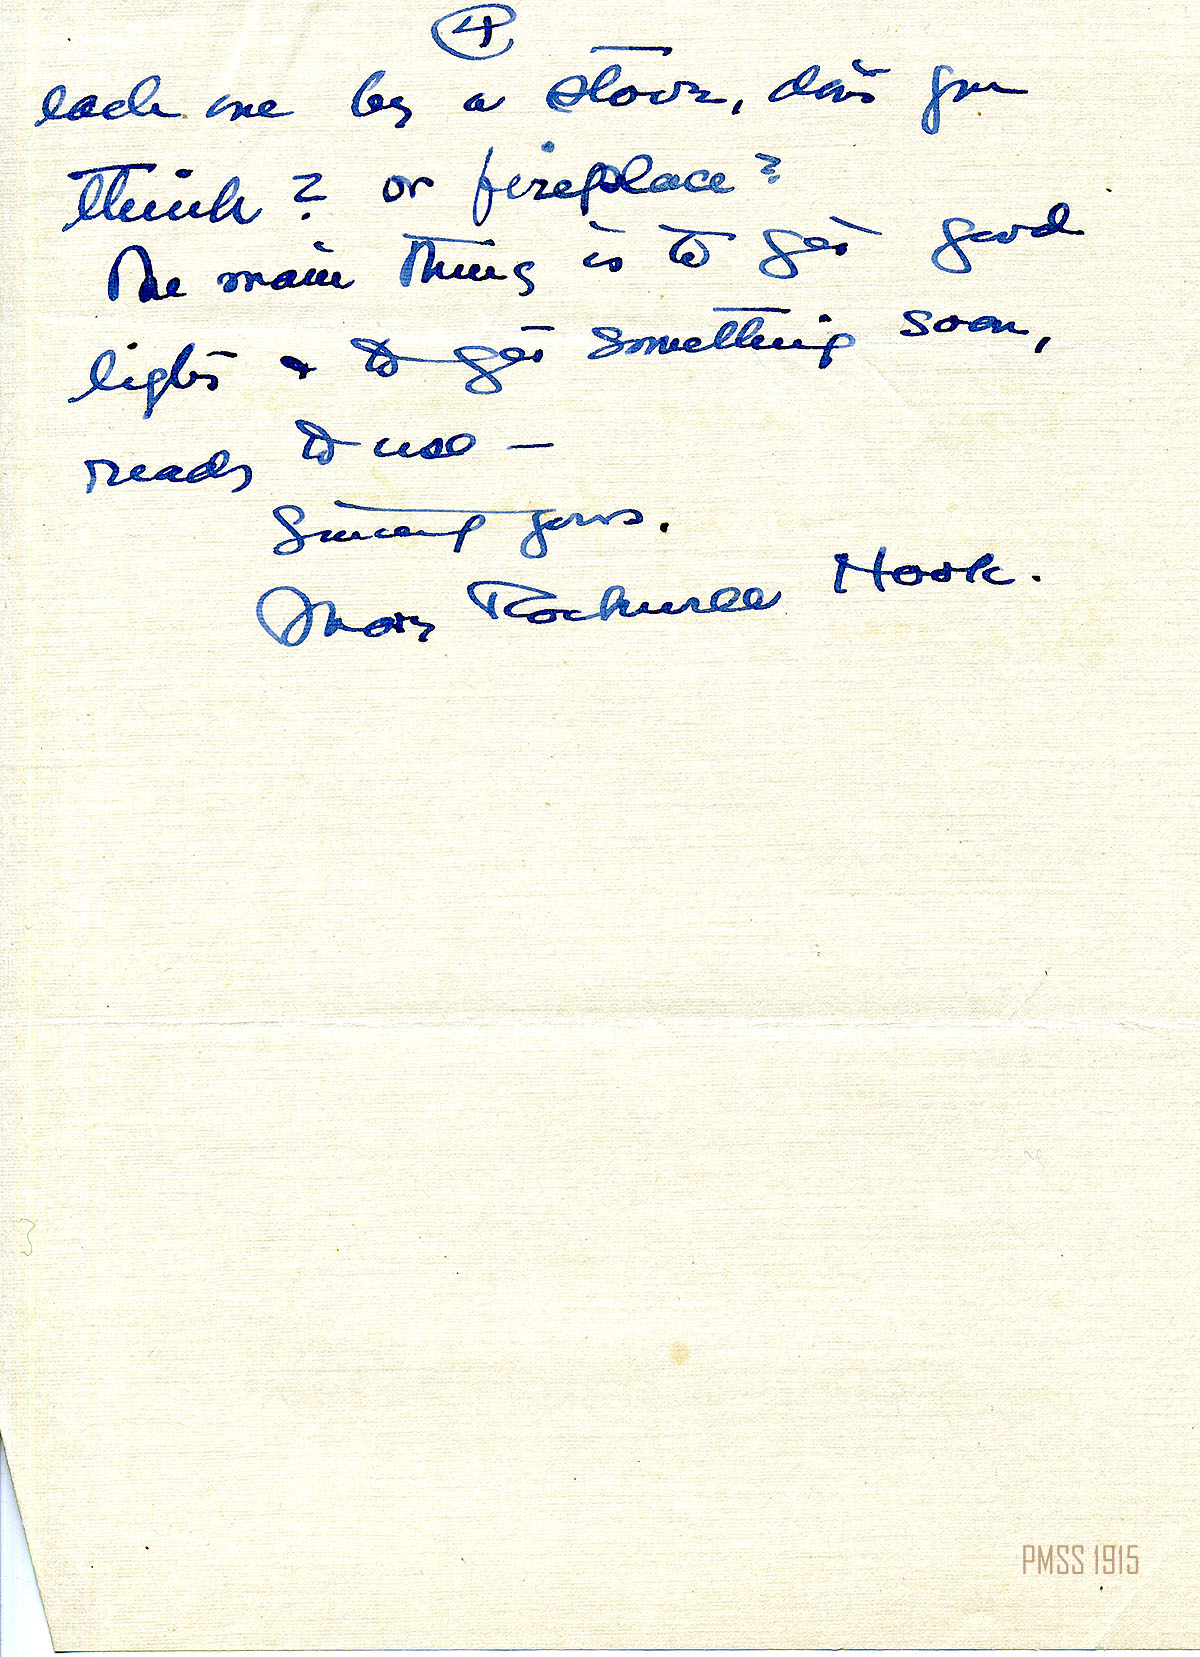 4
each one by a stove, don't you
think? or fireplace?
The main thing is to get good
light & to get something soon,
ready to use —
Sincerely yours.
Mary Rockwell Hook.
PMSS 1915